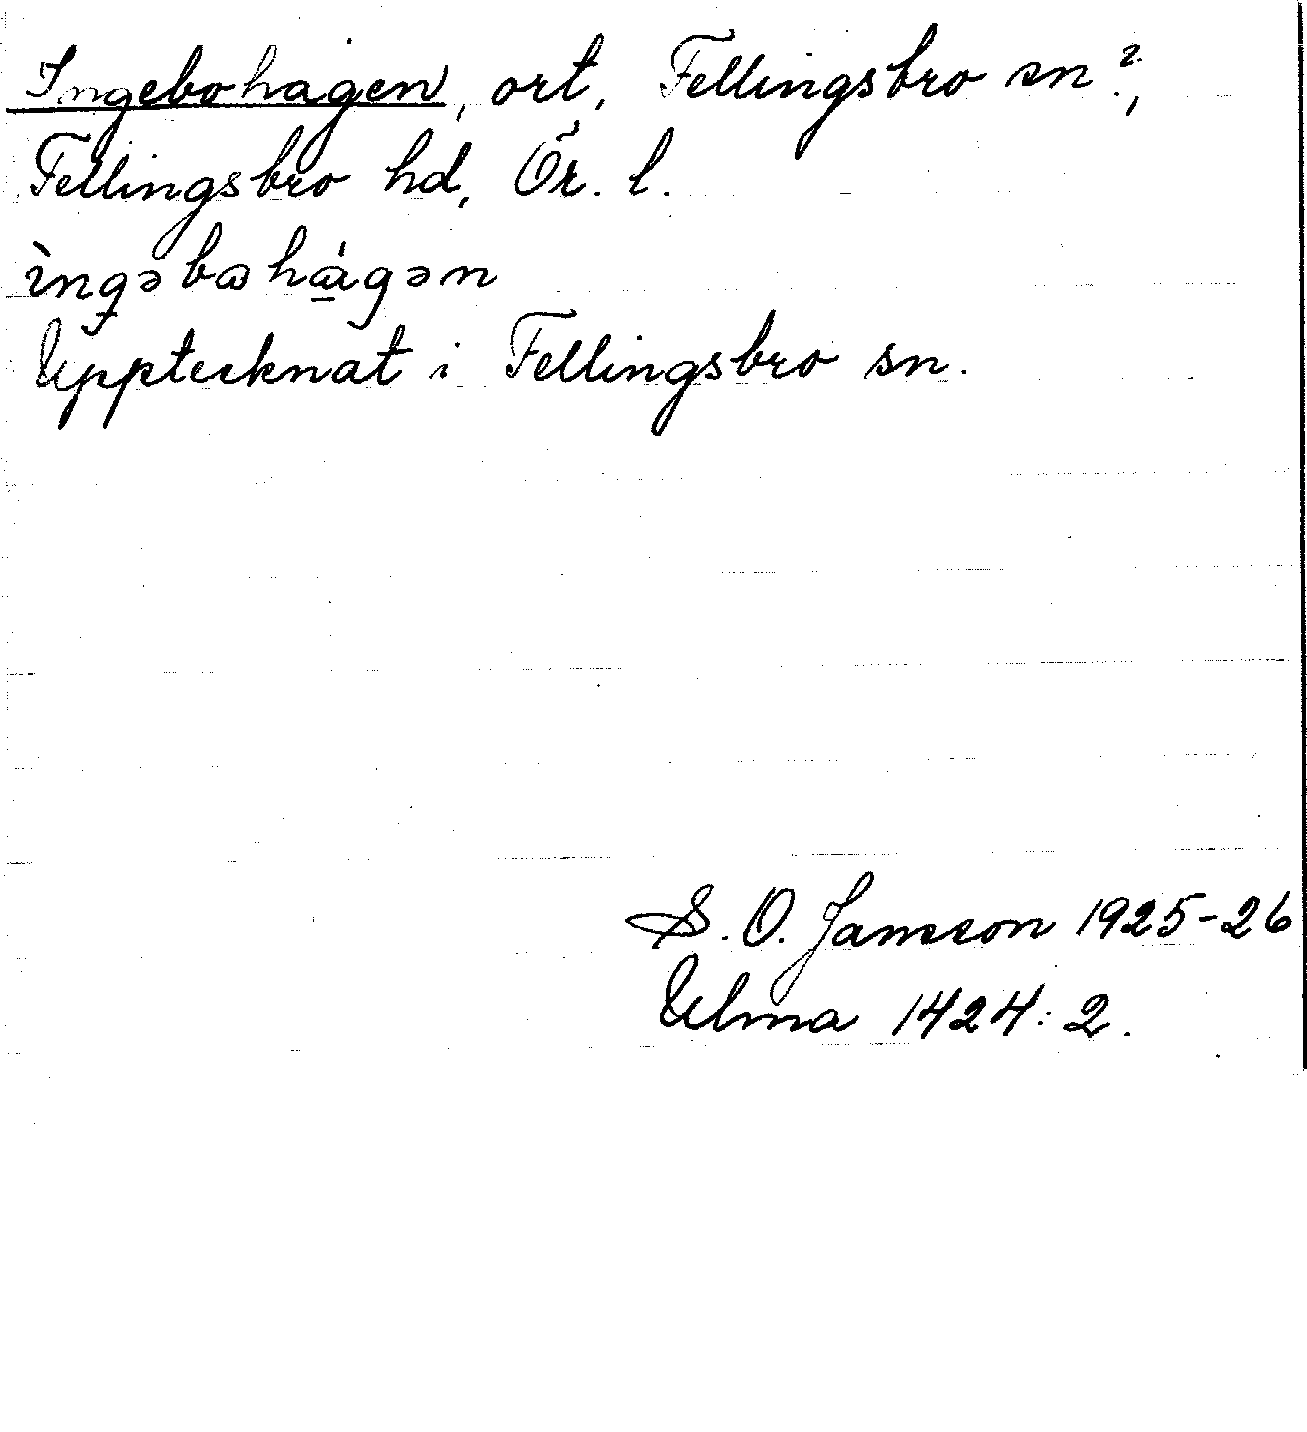 Ingebohagen, ort, Fellingsbro sn?,
Fellingsbro hd, Ör. l.
Upptecknat i Fellingsbro sn.
S. O. Jansson 1925-26
Ulma 1424:2.